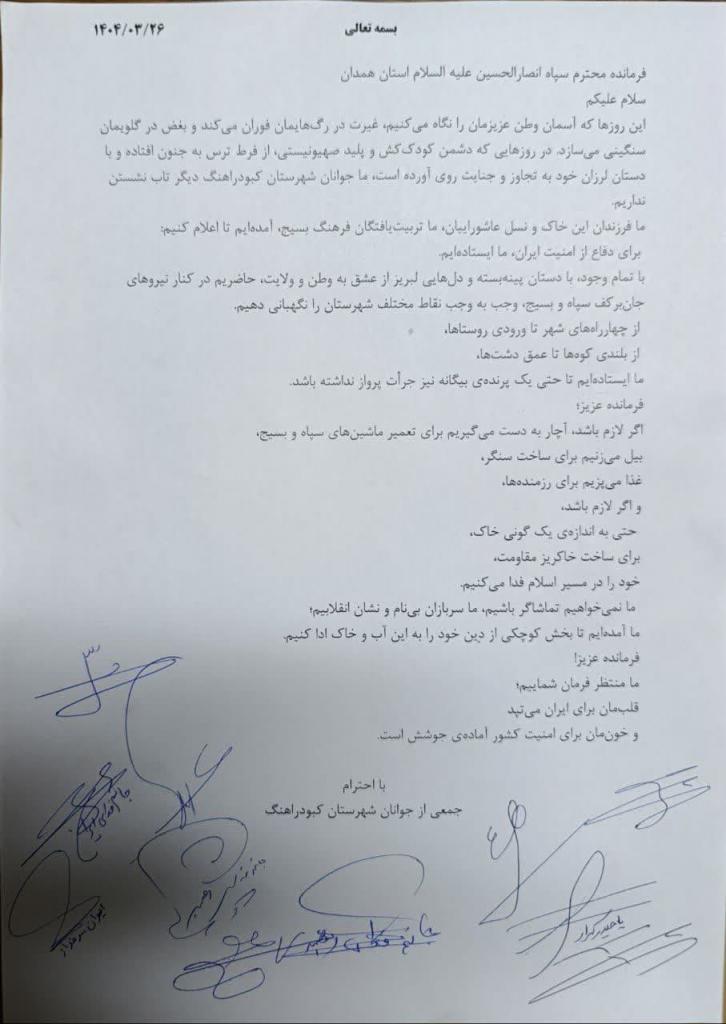 بسمه تعالی
۱۴۰۴/۰۳/۲۶
فرمانده محترم سپاه انصارالحسین علیه السلام استان همدان
سلام علیکم
این روزها که آسمان وطن عزیزمان را نگاه می‌کنیم، غیرت در رگ‌هایمان فوران می‌کند و بغض در گلویمان
سنگینی می‌سازد. در روزهایی که دشمن کودک‌کش و پلید صهیونیستی، از فرط ترس به جنون افتاده و با
دستان لرزان خود به تجاوز و جنایت روی آورده است، ما جوانان شهرستان کبودراهنگ دیگر تاب نشستن
نداریم.
ما فرزندان این خاک و نسل عاشوراییان، ما تربیت‌یافتگان فرهنگ بسیج، آمده‌ایم تا اعلام کنیم:
برای دفاع از امنیت ایران، ما ایستاده‌ایم.
با تمام وجود، با دستان پینه‌بسته و دل‌هایی لبریز از عشق به وطن و ولایت، حاضریم در کنار نیروهای
جان‌برکف سپاه و بسیج، وجب به وجب نقاط مختلف شهرستان را نگهبانی دهیم.
از چهارراه‌های شهر تا ورودی روستاها،
از بلندی کوه‌ها تا عمق دشت‌ها،
ما ایستاده‌ایم تا حتی یک پرنده‌ی بیگانه نیز جرأت پرواز نداشته باشد.
فرمانده عزیز؛
اگر لازم باشد، آچار به دست می‌گیریم برای تعمیر ماشین‌های سپاه و بسیج،
بیل می‌زنیم برای ساخت سنگر،
غذا می‌پزیم برای رزمنده‌ها،
و اگر لازم باشد،
حتی به اندازه‌ی یک گونی خاک،
برای ساخت خاکریز مقاومت،
خود را در مسیر اسلام فدا می‌کنیم.
ما نمی‌خواهیم تماشاگر باشیم، ما سربازان بی‌نام و نشان انقلابیم؛
ما آمده‌ایم تا بخش کوچکی از دین خود را به این آب و خاک ادا کنیم.
فرمانده عزیز!
ما منتظر فرمان شماییم؛
قلب‌مان برای ایران می‌تپد
و خون‌مان برای امنیت کشور آماده‌ی جوشش است.
با احترام
جمعی از جوانان شهرستان کبودراهنگ
یا حیدر کرار
ایران سرفراز